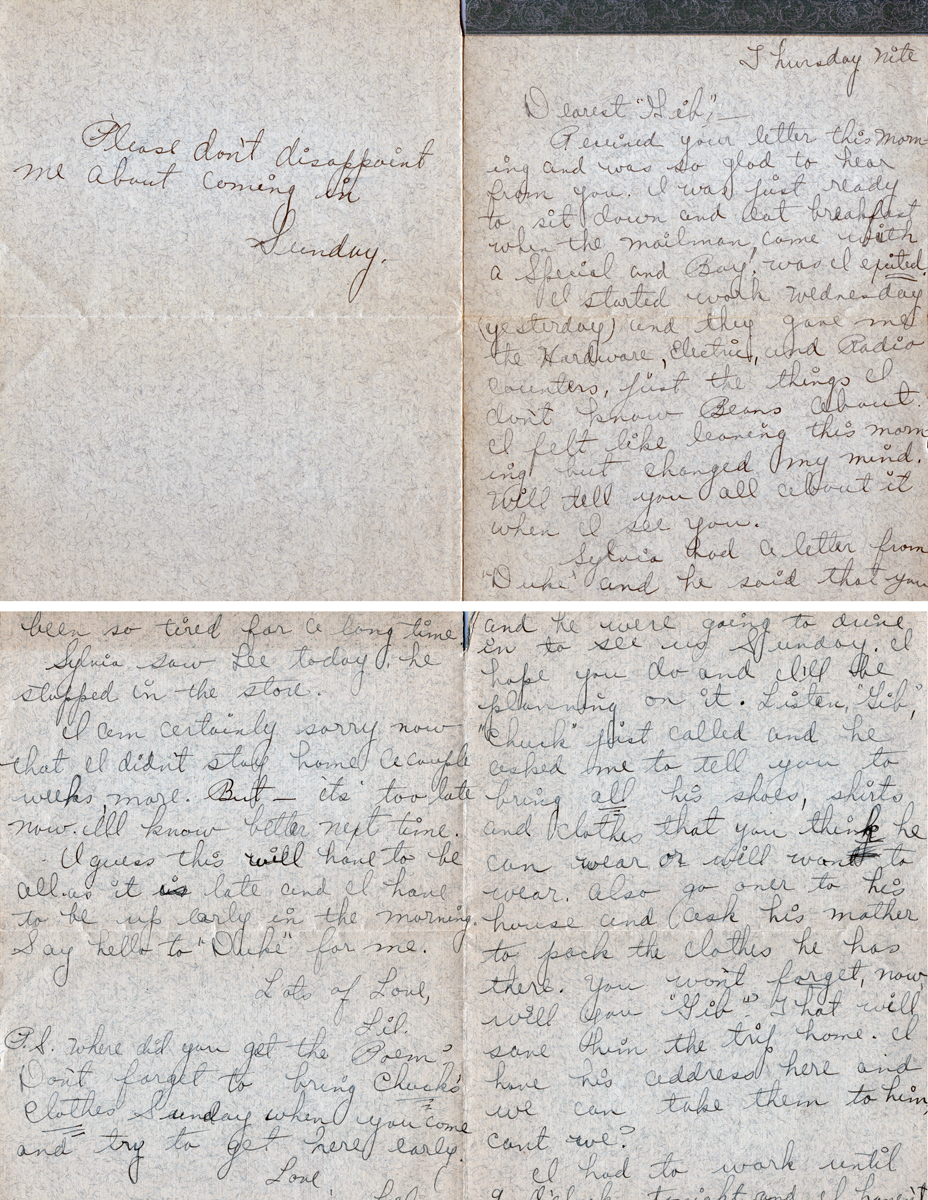 Thursday Nite
Dearest "Gib",—
Received your letter this morn-
ing and was so glad to hear
from you. I was just ready
to sit down and eat breakfast
when the mailman, came with
a Special and Boy! was I exited.
I started work Wednesday
(yesterday) and they gave me
the Hardware, Electric, and Radio
counters, just the things I
don't know Beans about.
I felt like leaving this morn
ing but changed my mind.
Will tell you all about it
when I see you.
Sylvia had a letter from
"Duke" and he said that you
and he were going to drive
in to see us Sunday. I
hope you do and I'll be
planning on it. Listen, "Gib",
"Chuck" just called and he
asked me to tell you to
bring all his shoes, shirts
and clothes that you think he
can wear or will want to
wear. Also go over to his
house and ask his mother
to pack the clothes he has
there. You won't forget, now,
will you "Gib"? That will
save him the trip home. I
have his address here and
we can take them to him,
cant we?
I had to work until
9 o'clock tonight and I haven't
been so tired for a long time.
Sylvia saw Lee today. he
stopped in the store.
I am certainly sorry now
that I didn't stay home a couple
weeks, more. But — it's too late
now. I'll know better next time.
I guess this will have to be
all as it is late and I have
to be up early in the morning.
Say hello to "Duke" for me.
Lots of Love,
Lil.
P.S. Where did you get the Poem?
Don't forget to bring Chuck's
clothes Sunday when you come
and try to get here early.
Love
Lil
Please don't disappoint
me about coming in
Sunday.